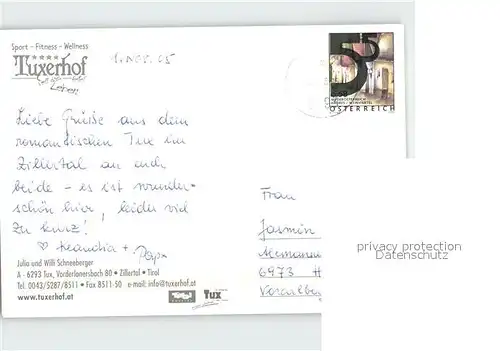 Sport - Fitness - Wellness
Tuxerhof
Leben
1. Nov. 05
50
ÖSTERREICH
Liebe Grüße aus dem
romantischen Tux im
Zillertal an euch
beide - es ist wunder-
schön hier, leider viel
zu kurz!
♡ Claudia + Papa
Julia und Willi Schnenberger
A - 6293 Tux, Vorderlanersbach 80 • Zillertal • Tirol
Tel. 0043/5287/8511 • Fax 8511-50 e-mail: info@tuxerhof.at
www.tuxerhof.at
Tirol
Tux
Frau
Jasmin
6973 H
Vorarlbe
privacy protection
Datenschutz